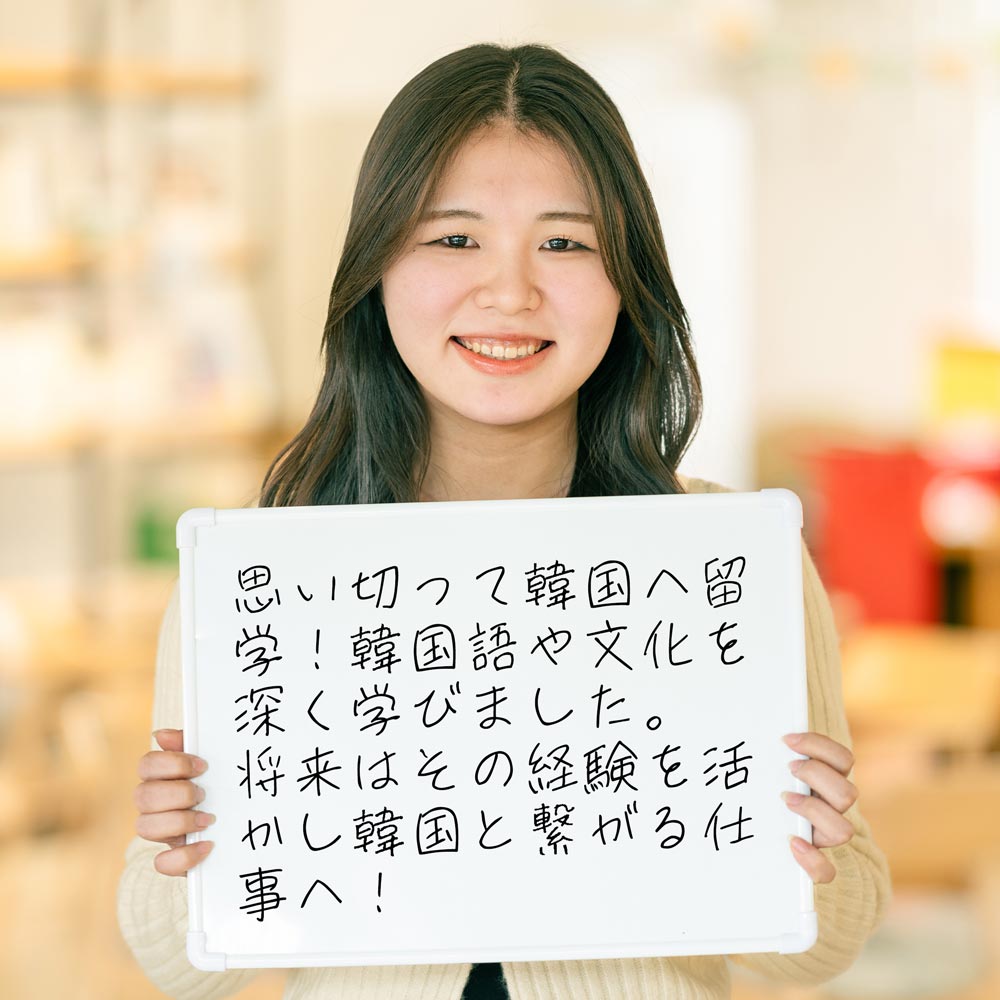 思い切って韓国へ留
学！韓国語や文化を
深く学びました。
将来はその経験を活
かし韓国と繋がる仕
事へ！